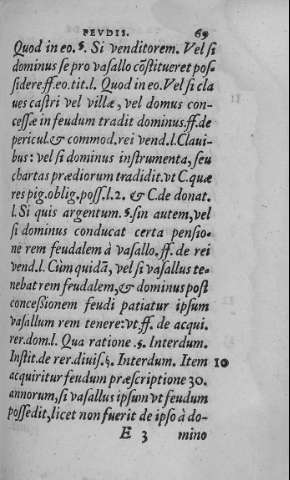 FEVDIS. 69
Quod in eo. §. Si venditorem. Vel si
dominus se pro vasallo cõstitueret pos-
sidere.ff.eo.tit.l. Quod in eo. Vel si cla
ues castri vel villæ, vel domus con-
cessæ in feudum tradit dominus.ff.de
pericul.& commod.rei vend.l.Claui-
bus: vel si dominus instrumenta, seu
chartas prædiorum tradidit.vt C.quæ
res pig.oblig.poss.l.2. & C.de donat.
l. Si quis argentum. §.sin autem, vel
si dominus conducat certa pensio-
ne rem feudalem à vasallo.ff. de rei
vend.l. Cùm quidã, vel si vasallus te-
nebat rem feudalem, & dominus post
concessionem feudi patiatur ipsum
vasallum rem tenere: vt ff. de acqui.
rer.dom.l. Qua ratione .§. Interdum.
Instit.de rer.diuis.§. Interdum. Item 10
acquiritur feudum præscriptione 30.
annorum, si vasallus ipsum vt feudum
possedit, licet non fuerit de ipso à do-
E 3 mino